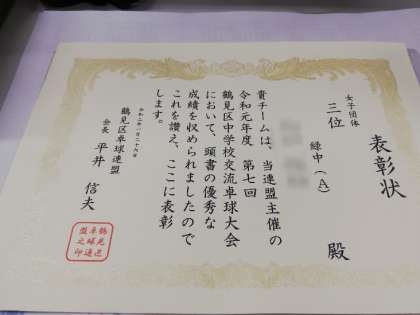 表彰状
女子団体
三位
緑中(A)
殿
貴チームは、当連盟主催の
令和元年度 第七回
鶴見区中学校交流卓球大会
において、頭書の優秀な
成績を収められましたので
これを讃え、ここに表彰
します。
令和二年一月二十六日
鶴見区卓球連盟
会長 平井 信夫
鶴見区
卓球連
盟之印